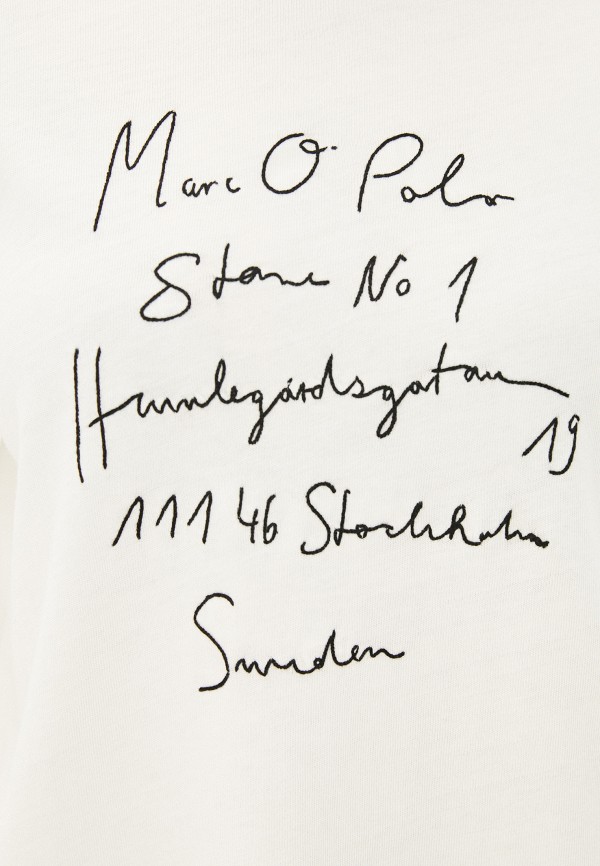 Marc O' Polo
Store No 1
Humlegårdsgatan
19
111 46 Stockholm
Sweden